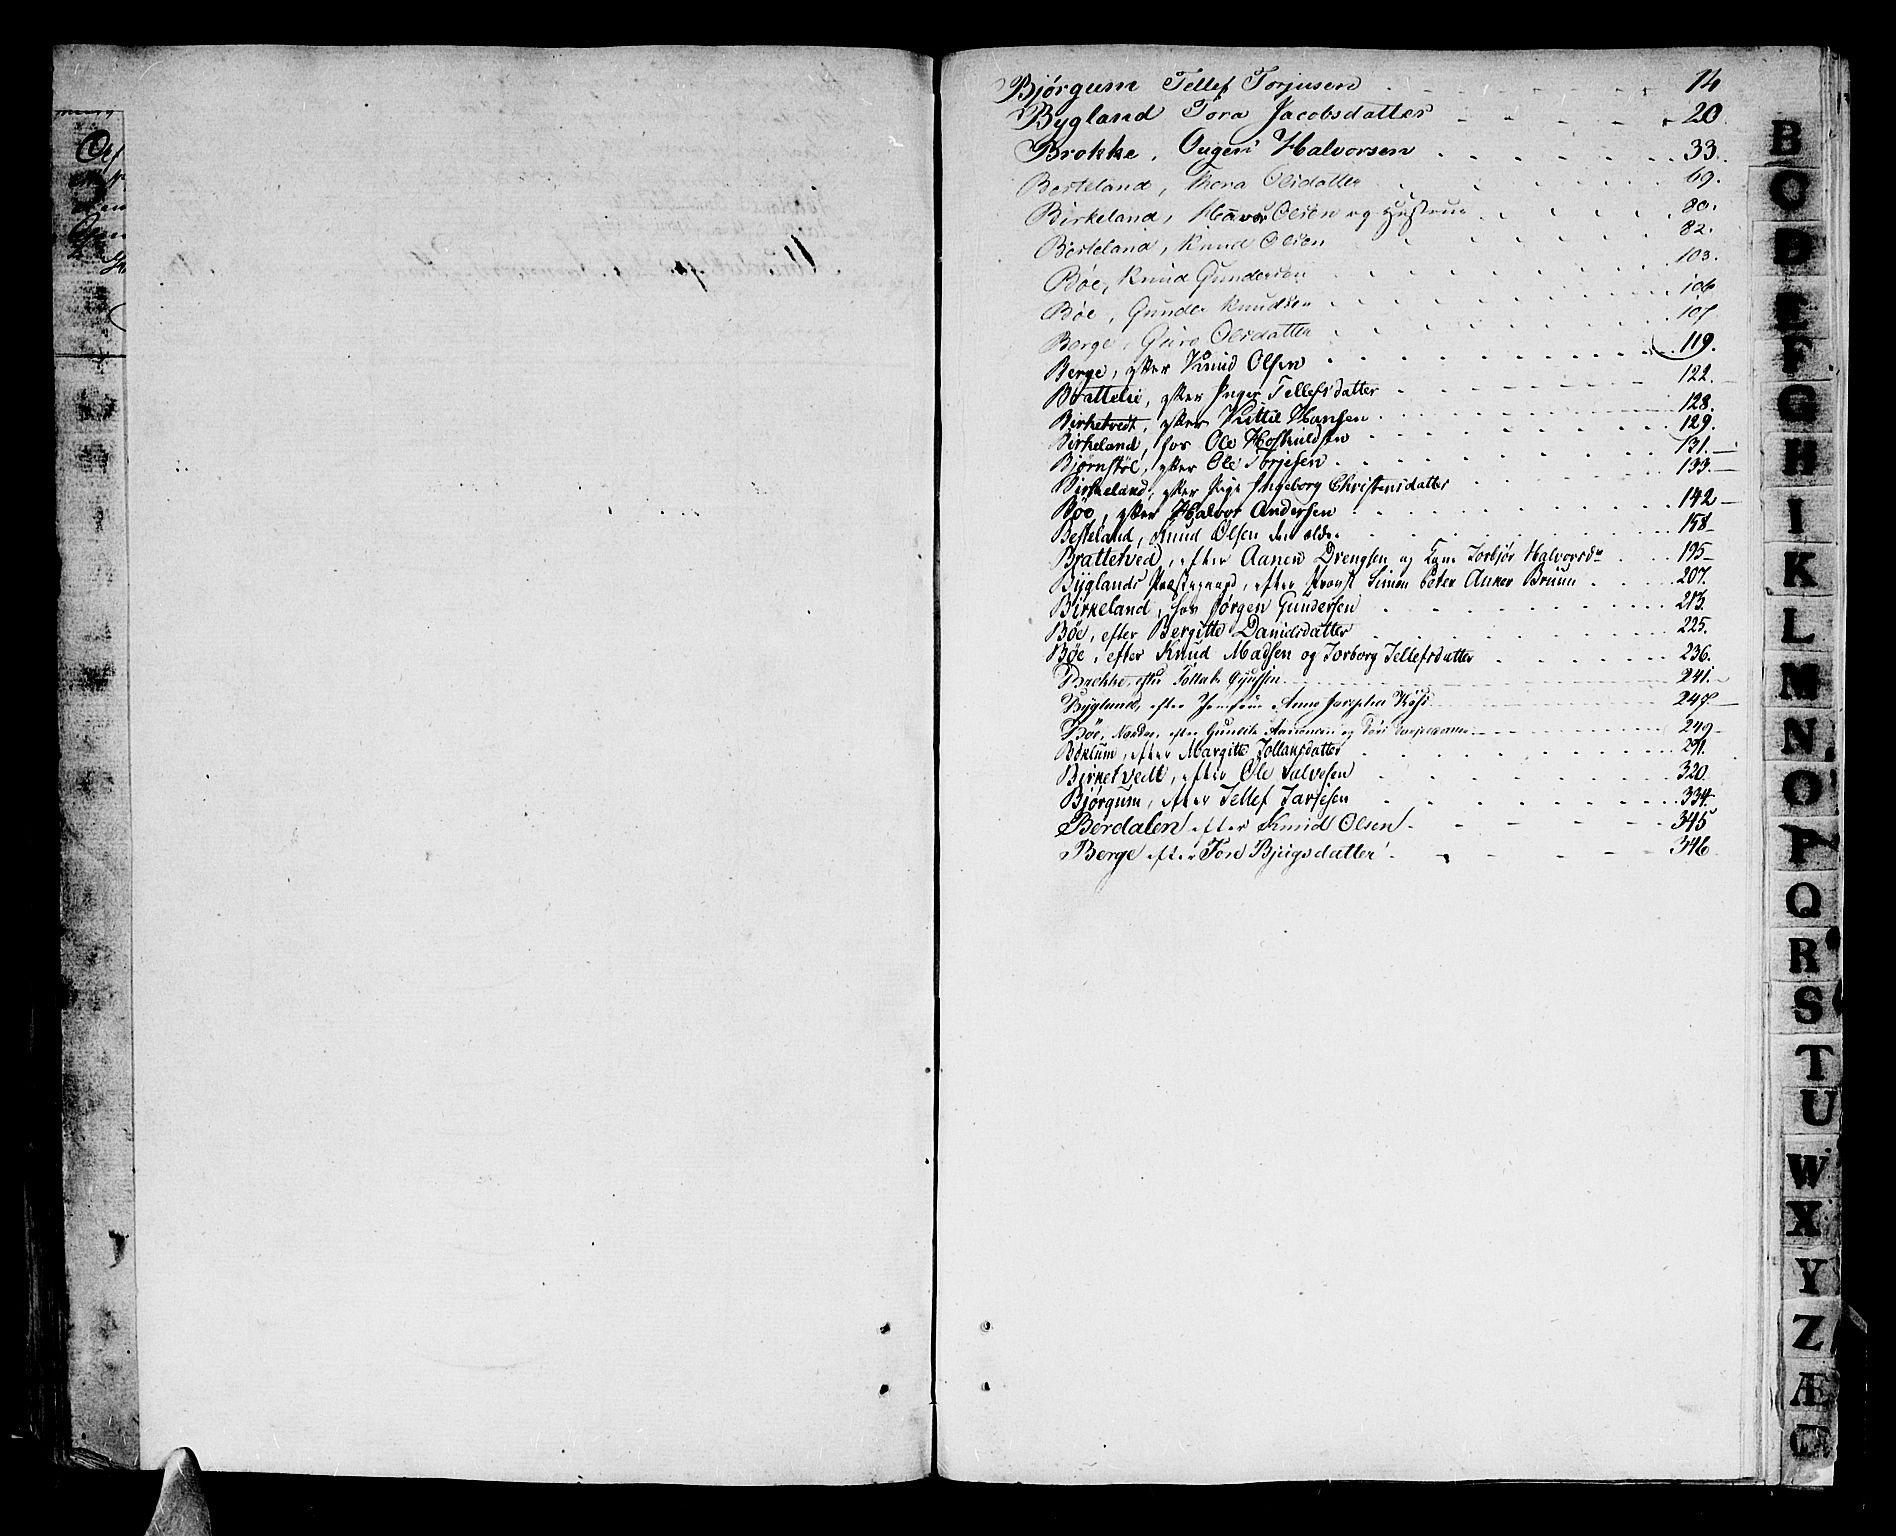 Bjørgum Tellef Torjusen 14
Bygland Tora Jacobsdatter 20
Brokke, Ougen Halvorsen 33
Besteland, Thora Olsdatter 69.
Birkeland, Haavor Olsen og Hustrue 80.
Besteland, Knud Olsen 82.
Bøe, Knud Gundersen 103.
Bøe, Gunder Knudsen 106
Berge, Guro Olsdatter 107
Berge, efter Knud Olsen 119.
Brattelie, efter Inger Tellefsdatter 122.
Birketvedt, efter Kittil Hansen 128.
Birkeland, for Ole Hoskuldsen 129.
Bjørnstøl, efter Ole Torjesen 131.
Birkeland, efter Pige Ingeborg Christensdatter 133.
Bøe, efter Halvor Andersen 142
Besteland, Knud Olsen den ældre 158
Brattetved, efter Aanen Drengsen og Kone Torbjør Halvorsdr 195
Byglands Præstegaard, efter Provst Simon Peter Anker Bruun 207.
Birkeland, hos Jørgen Gundersen 213.
Bøe, efter Bergitte Danielsdatter 225.
Bøe, efter Knud Madsen og Torborg Tellefsdatter 236.
Brekke, efter Tollak 241.
Bygland, efter Jomfrue Anne 247.
Bøe, Nordre, efter Gunild Aanonsen og 249
Boklum, efter Margitte Tollaksdatter 291.
Birketvedt, efter Ole Salvesen 320.
Bjørgum, efter Tellef Tarjesen 334
Berdalen efter Knud Olsen 345
Berge efter Tone Bjugsdatter 346
B
O
D
E
F
G
H
I
K
L
M
N
O
P
Q
R
S
T
U
W
X
Y
Z
Æ